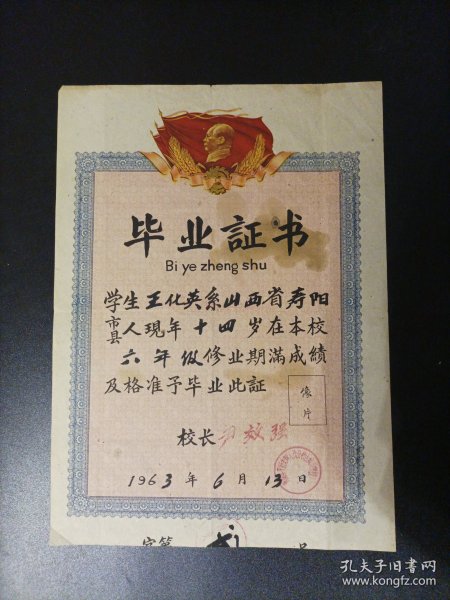 毕业証书
Bi ye zheng shu
学生王化英系山西省寿阳
市县人現年十四岁在本校
六年级修业期滿成績
及格准予毕业此証
像片
校长
1963年6月13日
字第 号
孔夫子旧书网
www.kongfz.com